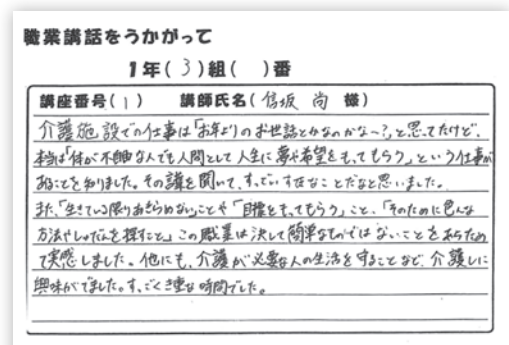 職業講話をうかがって
1年(3)組( )番
講座番号(1) 講師氏名(信坂 尚 様)
介護施設での仕事は「お年よりのお世話とかなのかな〜?」と思ってたけど、
本当は「体が不自由な人でも人間として人生に夢や希望をもってもらう」という仕事が
あることを知りました。その講を聞いて、すっごいすてきなことだなと思いました。
また、「生きている限りあきらめないこと」や「目標をもってもらう」こと、「そのために色んな
方法やしゅだんを探すこと」この職業は決して簡単なものではないことをあらため
て実感しました。他にも、介護が必要な人の生活を守ることなど、介護しに
興味がでました。すっごく貴重な時間でした。